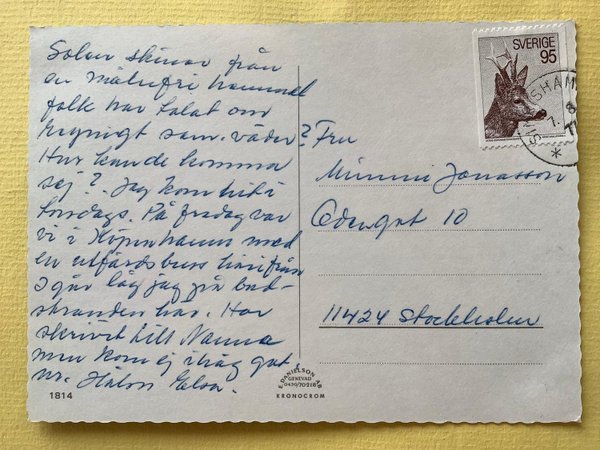 Solen skiner från
en molnfri himmel
folk har talat om
regnigt som. väder?
Hur kunde komma
sej? Jag kom hit i
torsdags. På fredag var
vi i Köpenhamn med
en utfärdsbuss härifrån
I går låg jag på bad-
stranden här. Har
skrivit till Nanna
men kom ej ihåg gat.
nr. Hälsn Elsa.
1814
E. DANIELSON AB
GENEVAD
0430/70218
KRONOCROM
SVERIGE
95
7. 8
Fru
Minni Jonasson
Odengat 10
11424 Stockholm